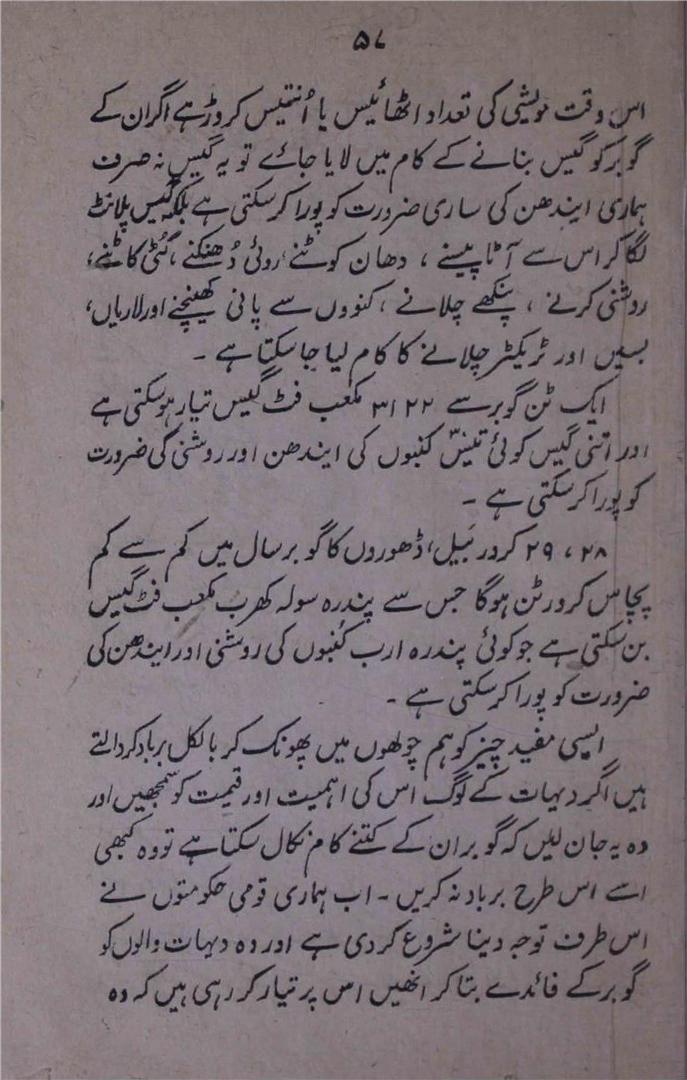 ۵۷
اس وقت مویشی کی تعداد اٹھائیس یا اُنتیس کروڑ ہے اگر ان کے
گوبر کو گیس بنانے کے کام میں لایا جائے تو یہ گیس نہ صرف
ہماری ایندھن کی ساری ضرورت کو پورا کر سکتی ہے بلکہ گیس پلانٹ
لگا کر اس سے آٹا پیسنے ، دھان کوٹنے ، روئی دُھنکنے ، کُٹی کاٹنے ،
روشنی کرنے ، پنکھے چلانے ، کنووں سے پانی کھینچنے اور لاریاں ،
بسیں اور ٹریکٹر چلانے کا کام لیا جا سکتا ہے ۔
ایک ٹن گوبر سے ۳۱۲۲ مکعب فٹ گیس تیار ہو سکتی ہے
اور اتنی گیس کوئی تینّس کنبوں کی ایندھن اور روشنی کی ضرورت
کو پورا کر سکتی ہے ۔
۲۸ ، ۲۹ کرور بیل ، ڈھوروں کا گوبر سال میں کم سے کم
پچاس کرور ٹن ہوگا جس سے پندرہ سولہ کھرب مکعب فٹ گیس
بن سکتی ہے جو کوئی پندرہ ارب کُنبوں کی روشنی اور ایندھن کی
ضرورت کو پورا کر سکتی ہے ۔
ایسی مفید چیز کو ہم چولھوں میں پھونک کر بالکل برباد کر دالتے
ہیں اگر دیہات کے لوگ اس کی اہمیت اور قیمت کو سمجھیں اور
وہ یہ جان لیں کہ گوبر ان کے کتنے کام نکال سکتا ہے تو وہ کبھی
اسے اس طرح برباد نہ کریں ۔ اب ہماری قومی حکومتوں نے
اس طرف توجہ دینا شروع کر دی ہے اور وہ دیہات والوں کو
گوبر کے فائدے بتا کر انھیں اس پر تیار کر رہی ہیں کہ وہ